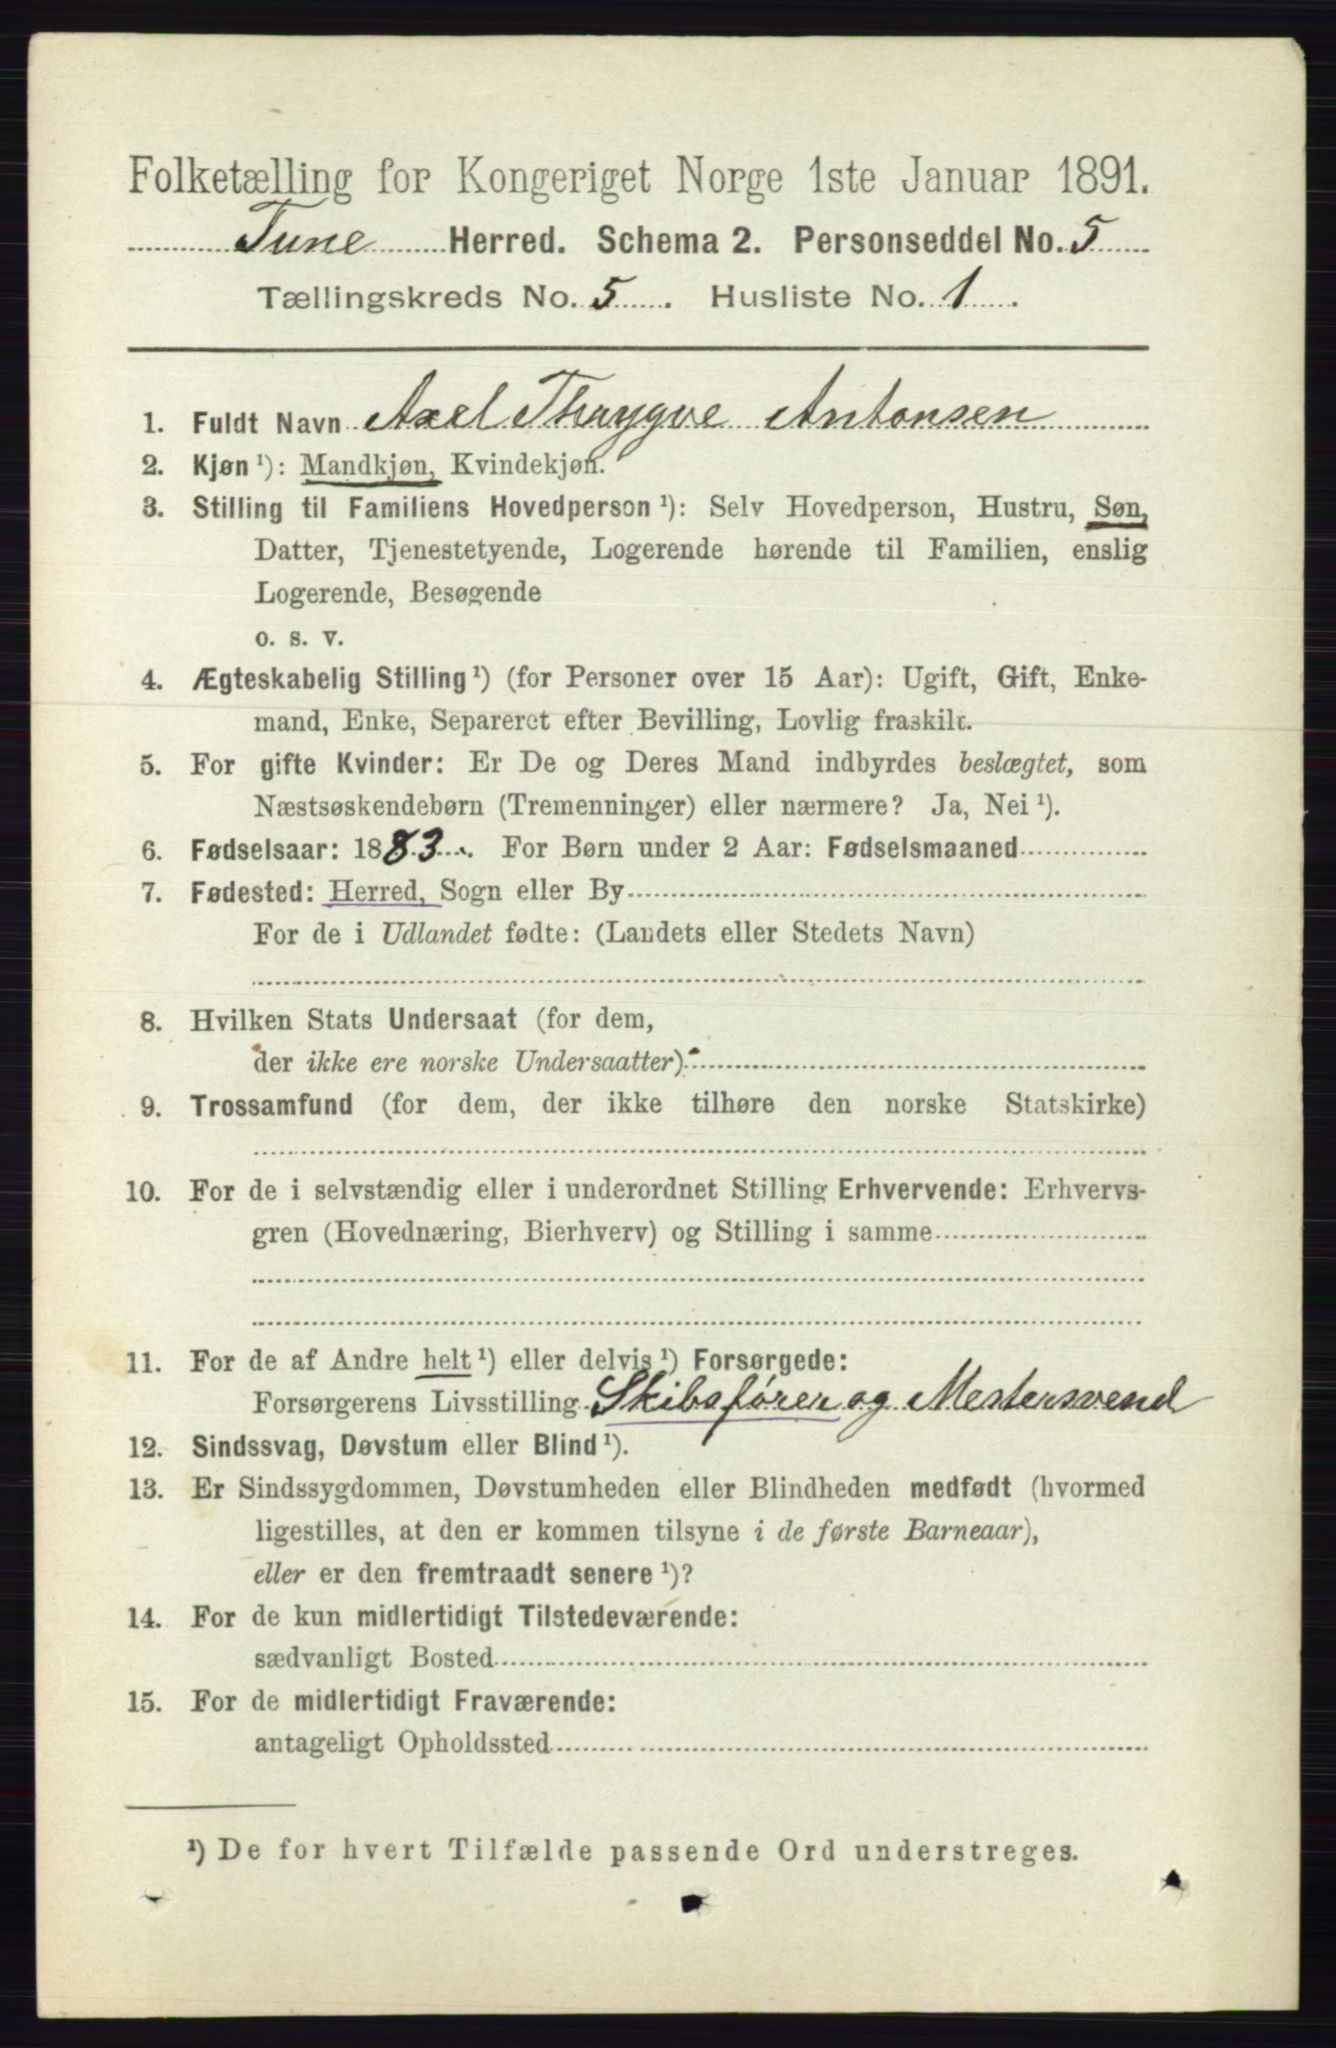 Folketælling for Kongeriget Norge 1ste Januar 1891.
Tune Herred. Schema 2. Personseddel No. 5
Tællingskreds No. 5. Husliste No. 1.
1. Fuldt Navn Axel Thrygve Antonsen
2. Kjøn ¹): Mandkjøn, Kvindekjøn.
3. Stilling til Familiens Hovedperson ¹): Selv Hovedperson, Hustru, Søn,
Datter, Tjenestetyende, Logerende hørende til Familien, enslig
Logerende, Besøgende
o. s. v.
4. Ægteskabelig Stilling ¹) (for Personer over 15 Aar): Ugift, Gift, Enke-
mand, Enke, Separeret efter Bevilling, Lovlig fraskilt.
5. For gifte Kvinder: Er De og Deres Mand indbyrdes beslægtet, som
Næstsøskendebørn (Tremenninger) eller nærmere? Ja, Nei ¹).
6. Fødselsaar: 1883. For Børn under 2 Aar: Fødselsmaaned
7. Fødested: Herred, Sogn eller By
For de i Udlandet fødte: (Landets eller Stedets Navn)
8. Hvilken Stats Undersaat (for dem,
der ikke ere norske Undersaatter)
9. Trossamfund (for dem, der ikke tilhøre den norske Statskirke)
10. For de i selvstændig eller i underordnet Stilling Erhvervende: Erhvervs-
gren (Hovednæring, Bierhverv) og Stilling i samme
11. For de af Andre helt ¹) eller delvis ¹) Forsørgede:
Forsørgerens Livsstilling Skibsfører og Mestersvend
12. Sindssvag, Døvstum eller Blind ¹).
13. Er Sindssygdommen, Døvstumheden eller Blindheden medfødt (hvormed
ligestilles, at den er kommen tilsyne i de første Barneaar),
eller er den fremtraadt senere ¹)?
14. For de kun midlertidigt Tilstedeværende:
sædvanligt Bosted
15. For de midlertidigt Fraværende:
antageligt Opholdssted
¹) De for hvert Tilfælde passende Ord understreges.